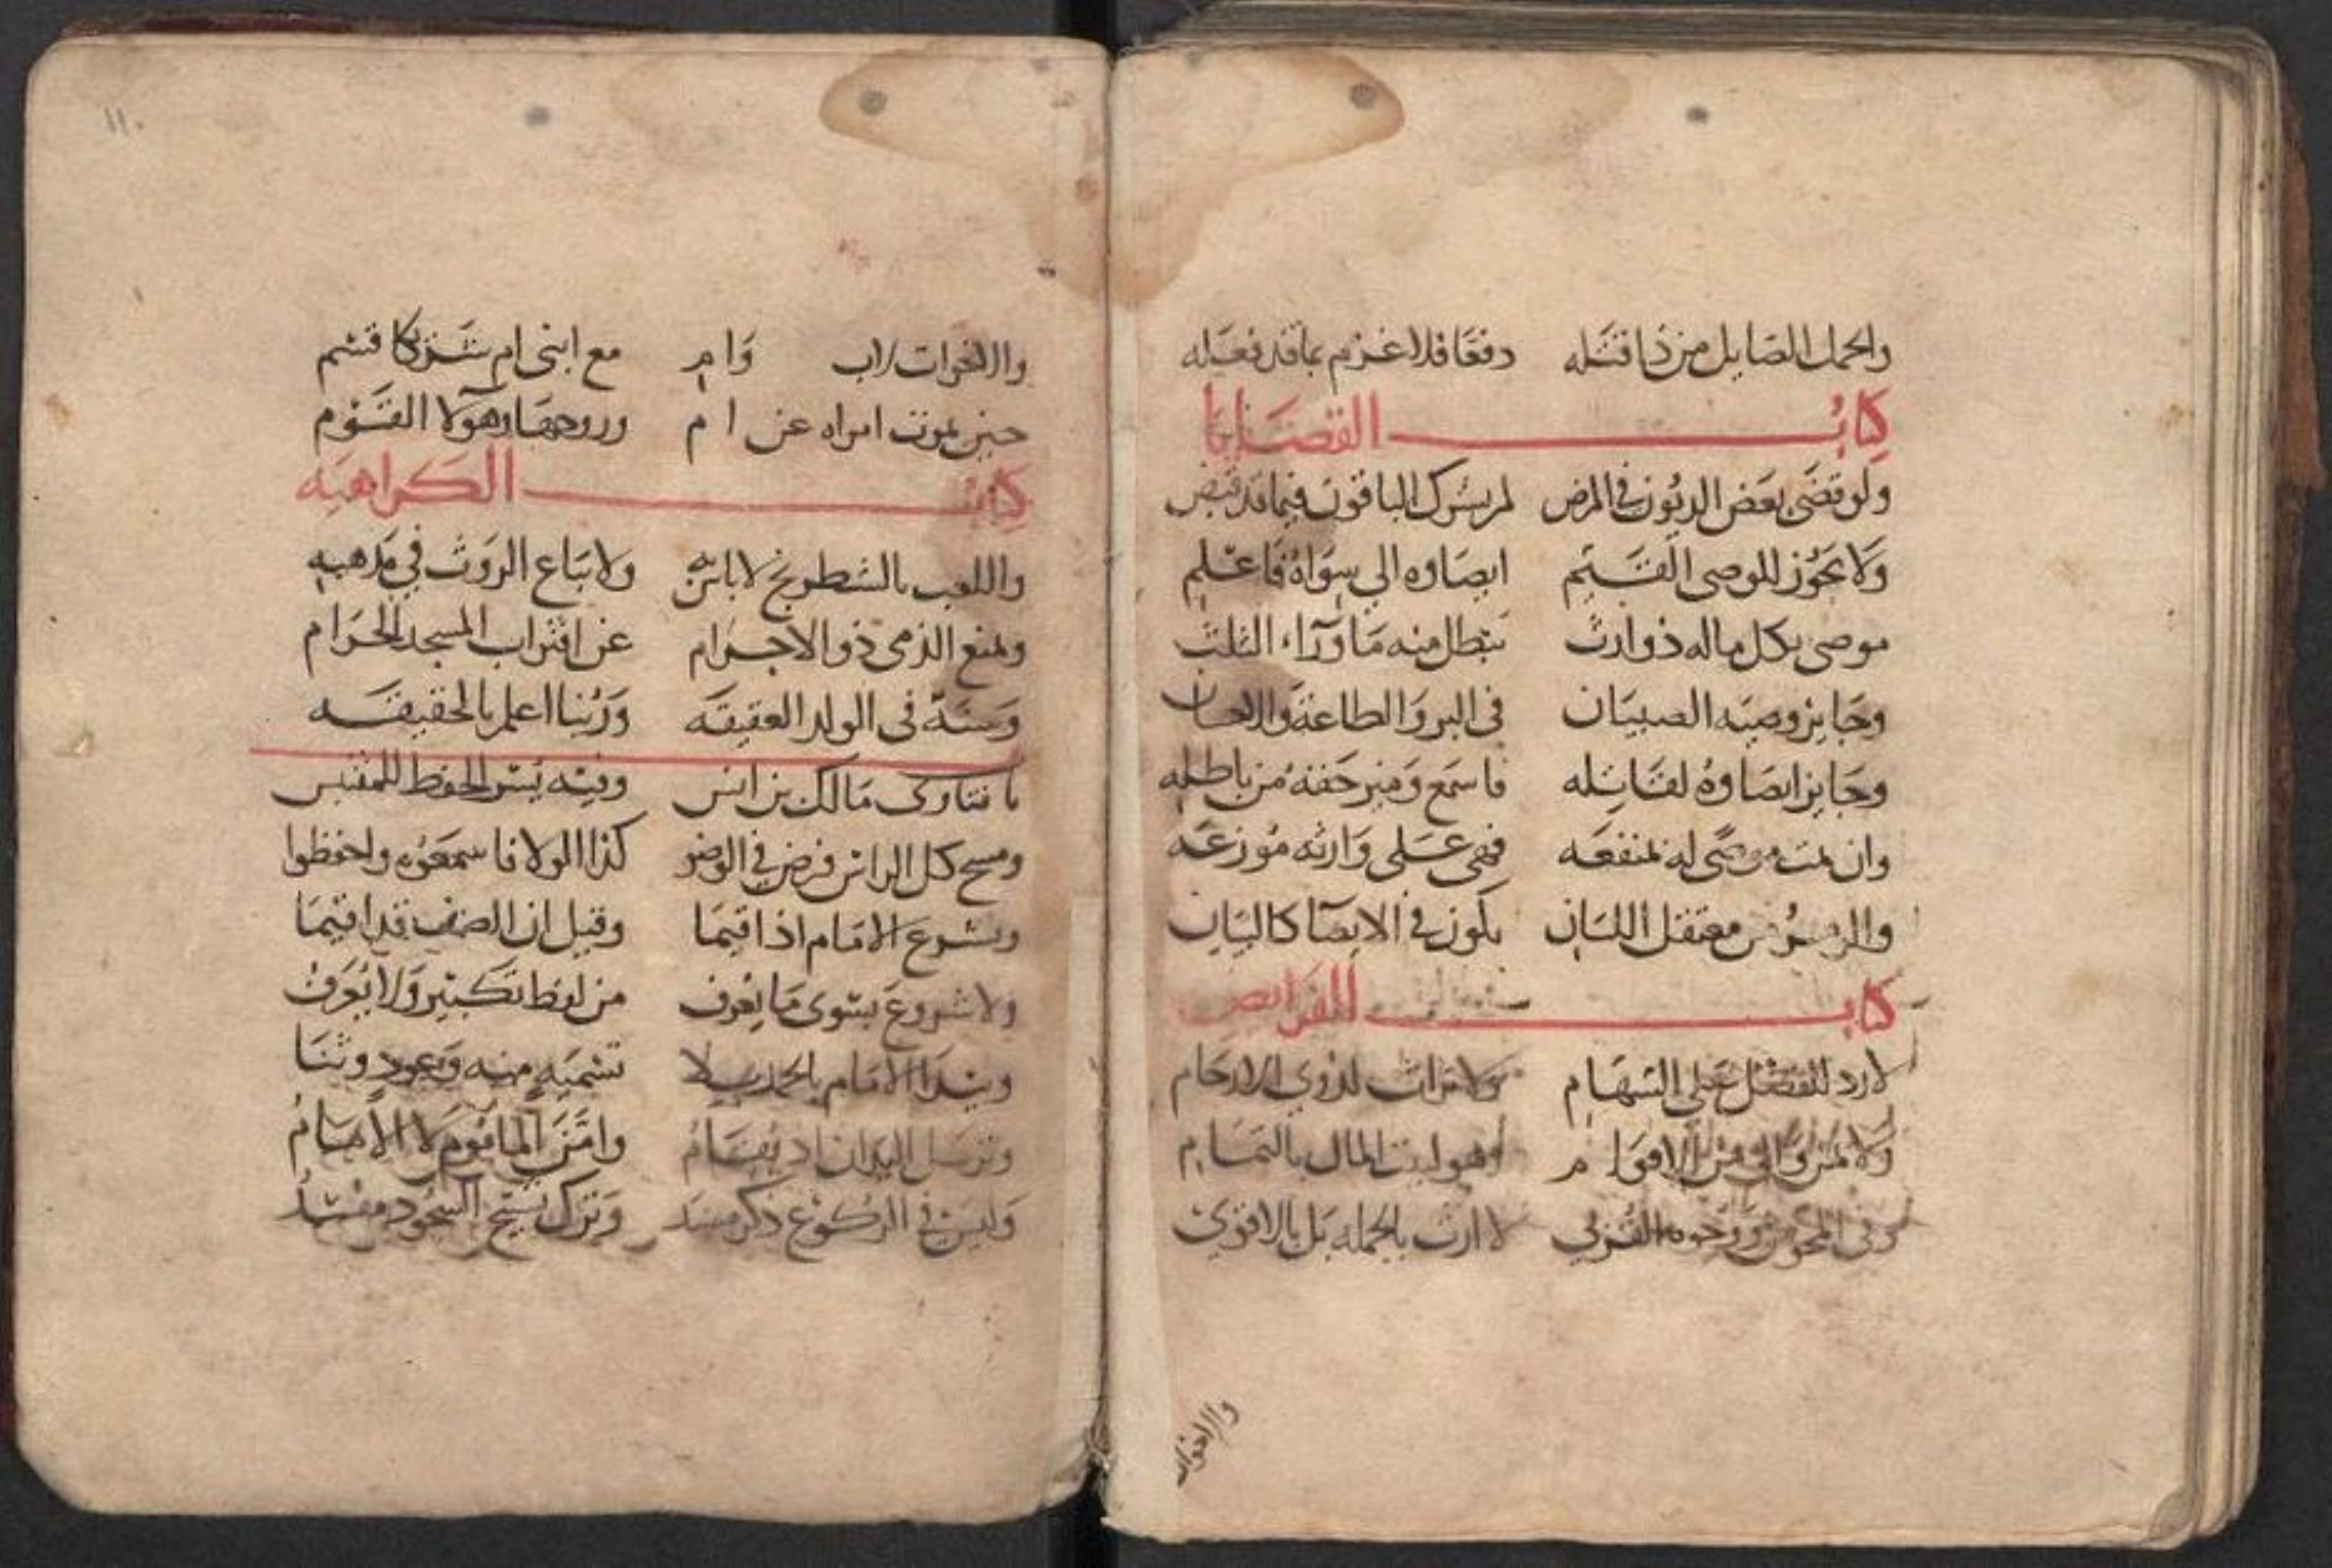 والجمل الصايل من ذا قتله دفعا فلا غرم بما قد فعله
كتاب الوصايا
ولو قضى بعض الديون في المرض لم يشرك الباقون فيما قد قبض
ولا يجوز للوصي القيم ايصاوه الي سواه فاعلم
موصى بكل ماله ذو ارث تبطل منه ما ورآء الثلث
وجايز وصيه الصبيان في البر والطاعة والاحسان
وجايز ايصاوه لقاتله فاسمع وميز حقه من باطله
وان يمت موصى له بمنفعه فهي على وارثه موزعه
والرمز من معتقل اللسان يكون في الايصآ كالبيان
كتاب الفرايض
لا رد للفضل على السهام ولا تراث لذوي الارحام
ولا لمن والى من الاقوام وهو لبيت المال بالتمام
وفي المجوس وجوه القربى لا ارث بالجمله بل بالاقوى
والاخوات
١١٠
والاخوات لاب وام مع ابني ام شركا قسم
حين تموت امراه عن ام وزوجها وهولا القوم
كتاب الكراهيه
واللعب بالشطرنج لا باس به ولا تباع الروث في مذهبه
ويمنع الذمي ذو الاجرام عن اقتراب المسجد الحرام
وسنة في الولد العقيقه وربنا اعلم بالحقيقه
يا فتاوى مالك بن انس وفيه يسر الحفظ للمقتبس
ومسح كل الراس فرض في الوضو كذا الولا فاسمعوه واحفظوا
ويشرع الامام اذ اقيما وقيل ان الصف قد اقيما
ولا شروع بسوى ما يعرف من لفظ تكبير ولا يعرف
ويبدا الامام بالحمد بلا تسميه منه وتعوذ وثنا
وترسل اليدان اذ يقام وامن الماموم لا الامام
وليس في الركوع ذكر مسند وترك تسبيح السجود مفسد